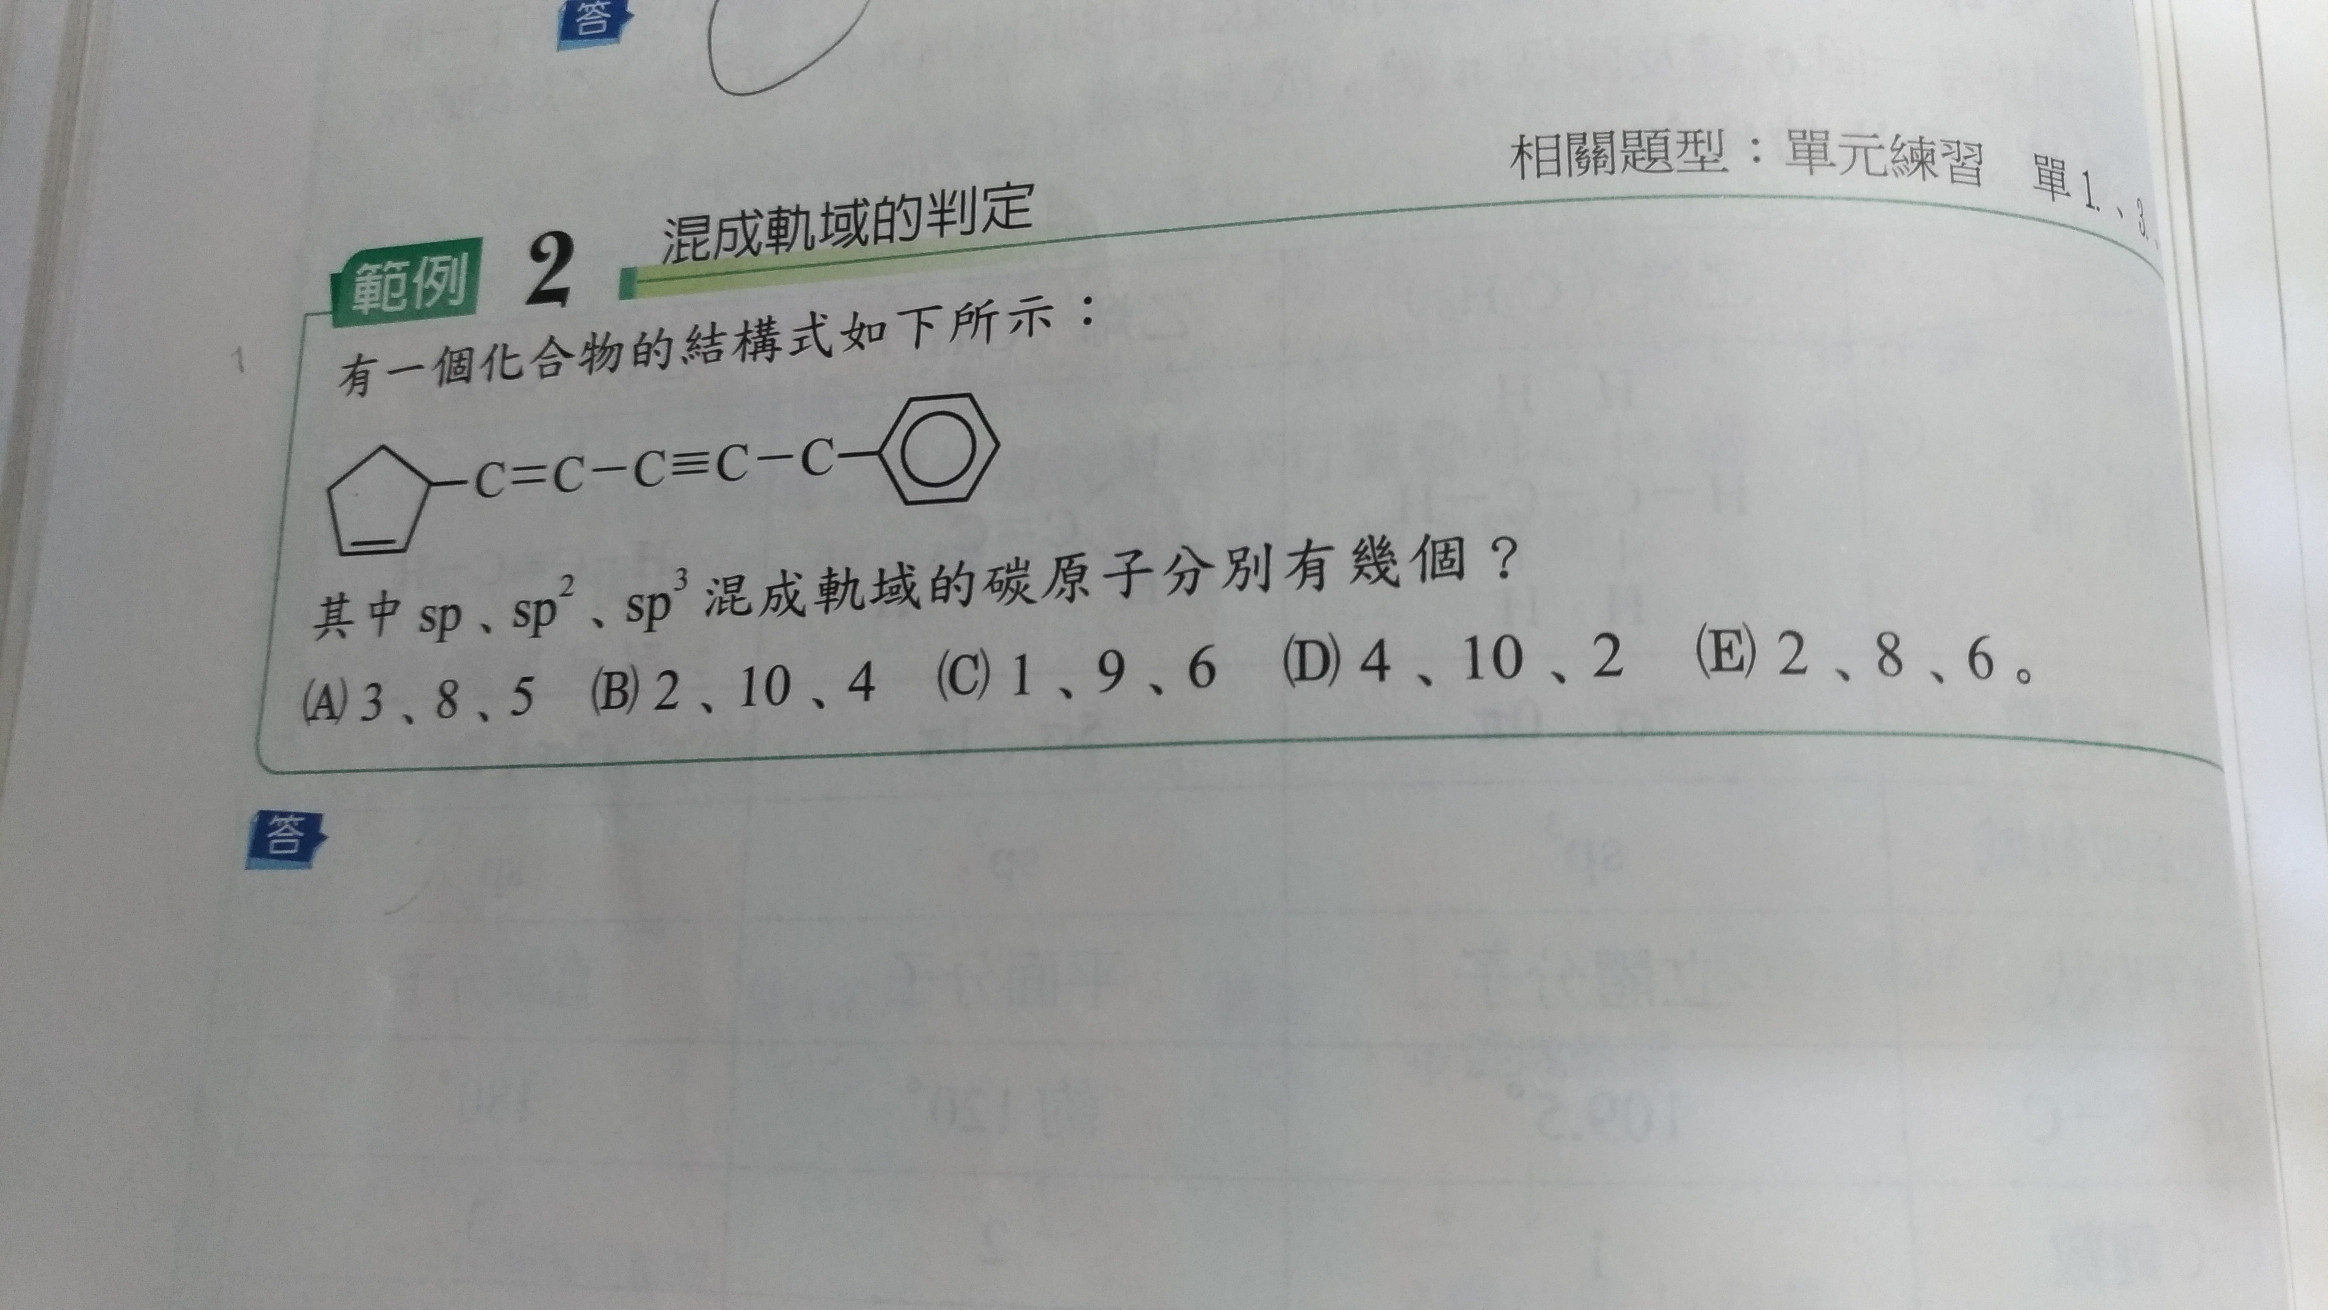 答
相關題型：單元練習 單1.、3.
範例 2 混成軌域的判定
有一個化合物的結構式如下所示：
C=C-C≡C-C
其中 sp、sp²、sp³ 混成軌域的碳原子分別有幾個？
(A) 3、8、5 (B) 2、10、4 (C) 1、9、6 (D) 4、10、2 (E) 2、8、6。
答